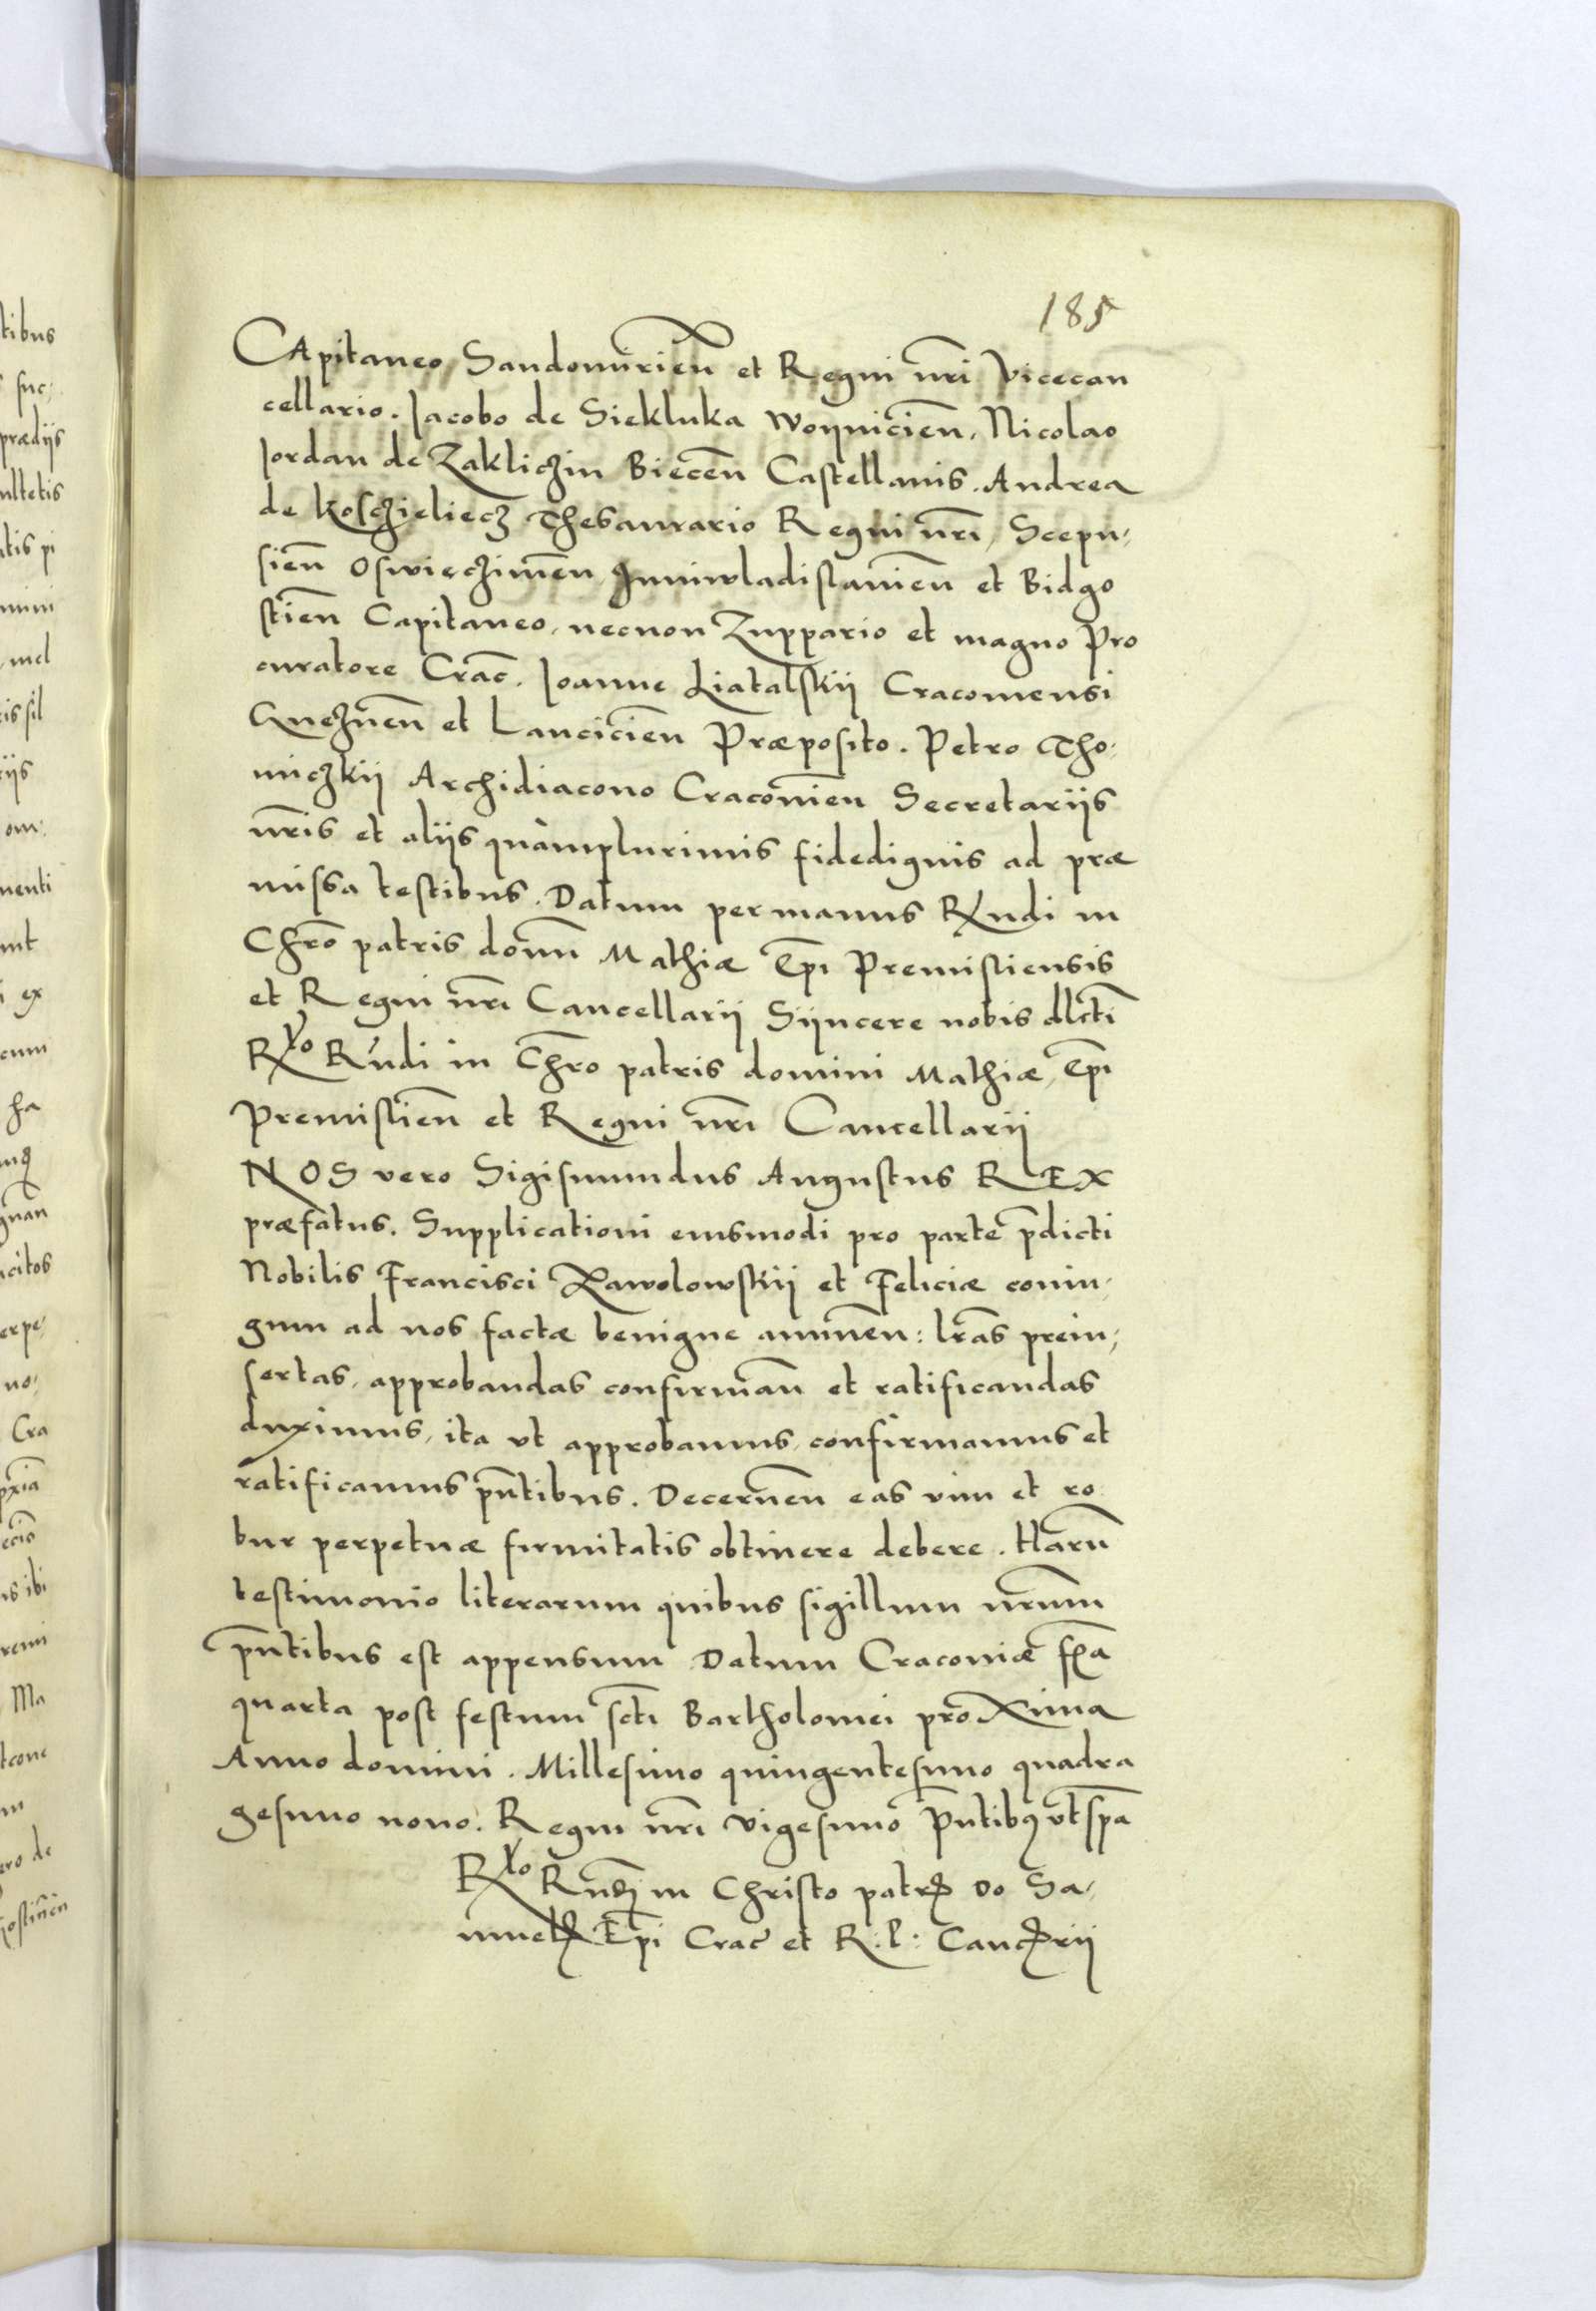 185
CApitaneo Sandomirien̄ et Regni nr̄i Vicecan
cellario. Jacobo de Siekluka Woynicien̄, Nicolao
Jordan de Zakliczin Biecen̄ Castellanis. Andrea
de Kosczieliecz Thesaurario Regni nr̄i, Scepu,
sien̄ Oswieczimen̄ Juniwladislavien̄ et Bidgo
stien̄ Capitaneo, necnon Zuppario et magno Pro
curatore Crac̄. Joanne Liatalskij Cracoviensi
Gneznen̄ et Lancicien̄ Præposito. Petro Tho,
miczkij Archidiacono Cracovien̄ Secretariis
nr̄is et aliis quàmplurimis fidedignis ad præ
missa testibus. Datum per manus Rn̄di in
Chr̄o patris domn̄ Mathiæ Ep̄i Premisliensis
et Regni nr̄i Cancellarij Sijncere nobis dlc̄ti
Rl̄o Rn̄di in Chr̄o patris domini Mathiæ, Ep̄i
Premislien̄ et Regni nr̄i Cancellarij
NOS vero Sigismundus Augustus REX
præfatus. Supplicationi eiusmodi pro parte p̄dicti
Nobilis Francisci Rawolowskij et Feliciæ coniu,
gum ad nos factæ benigne annuen̄: lr̄as prein,
sertas, approbandas confirman̄ et ratificandas
duximus, ita vt approbamus, confirmamus et
ratificamus pn̄tibus. Decernen̄ eas vim et ro
bur perpetuæ firmitatis obtinere debere. Harū
testimonio literarum quibus sigillum nr̄um
pn̄tibus est appensum Datum Cracoviæ fr̄a
quarta post festum sct̄i Bartholomei proxima
Anno domini. Millesimo quingentesimo quadra
gesimo nono. Regni nr̄i Vigesimo Pn̄tibq vt sp̄a
Rl̄o Rn̄di in Christo patrꝭ Do Sa,
muelꝭ Ep̄i Crac̄ et R: P: Cancꝭrij